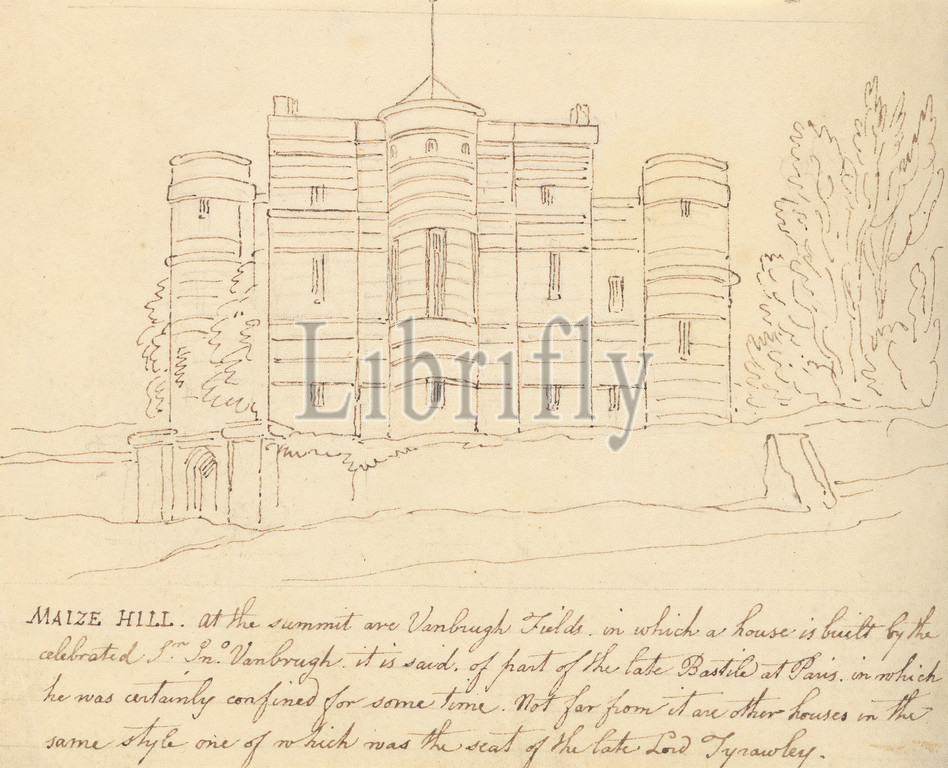 Librifly
MAIZE HILL. at the summit are Vanbrugh Fields. in which a house is built by the
celebrated Sr. Jno. Vanbrugh. it is said. of part of the late Bastile at Paris. in which
he was certainly confined for some time. Not far from it are other houses in the
same style one of which was the seat of the late Lord Tyrawley.